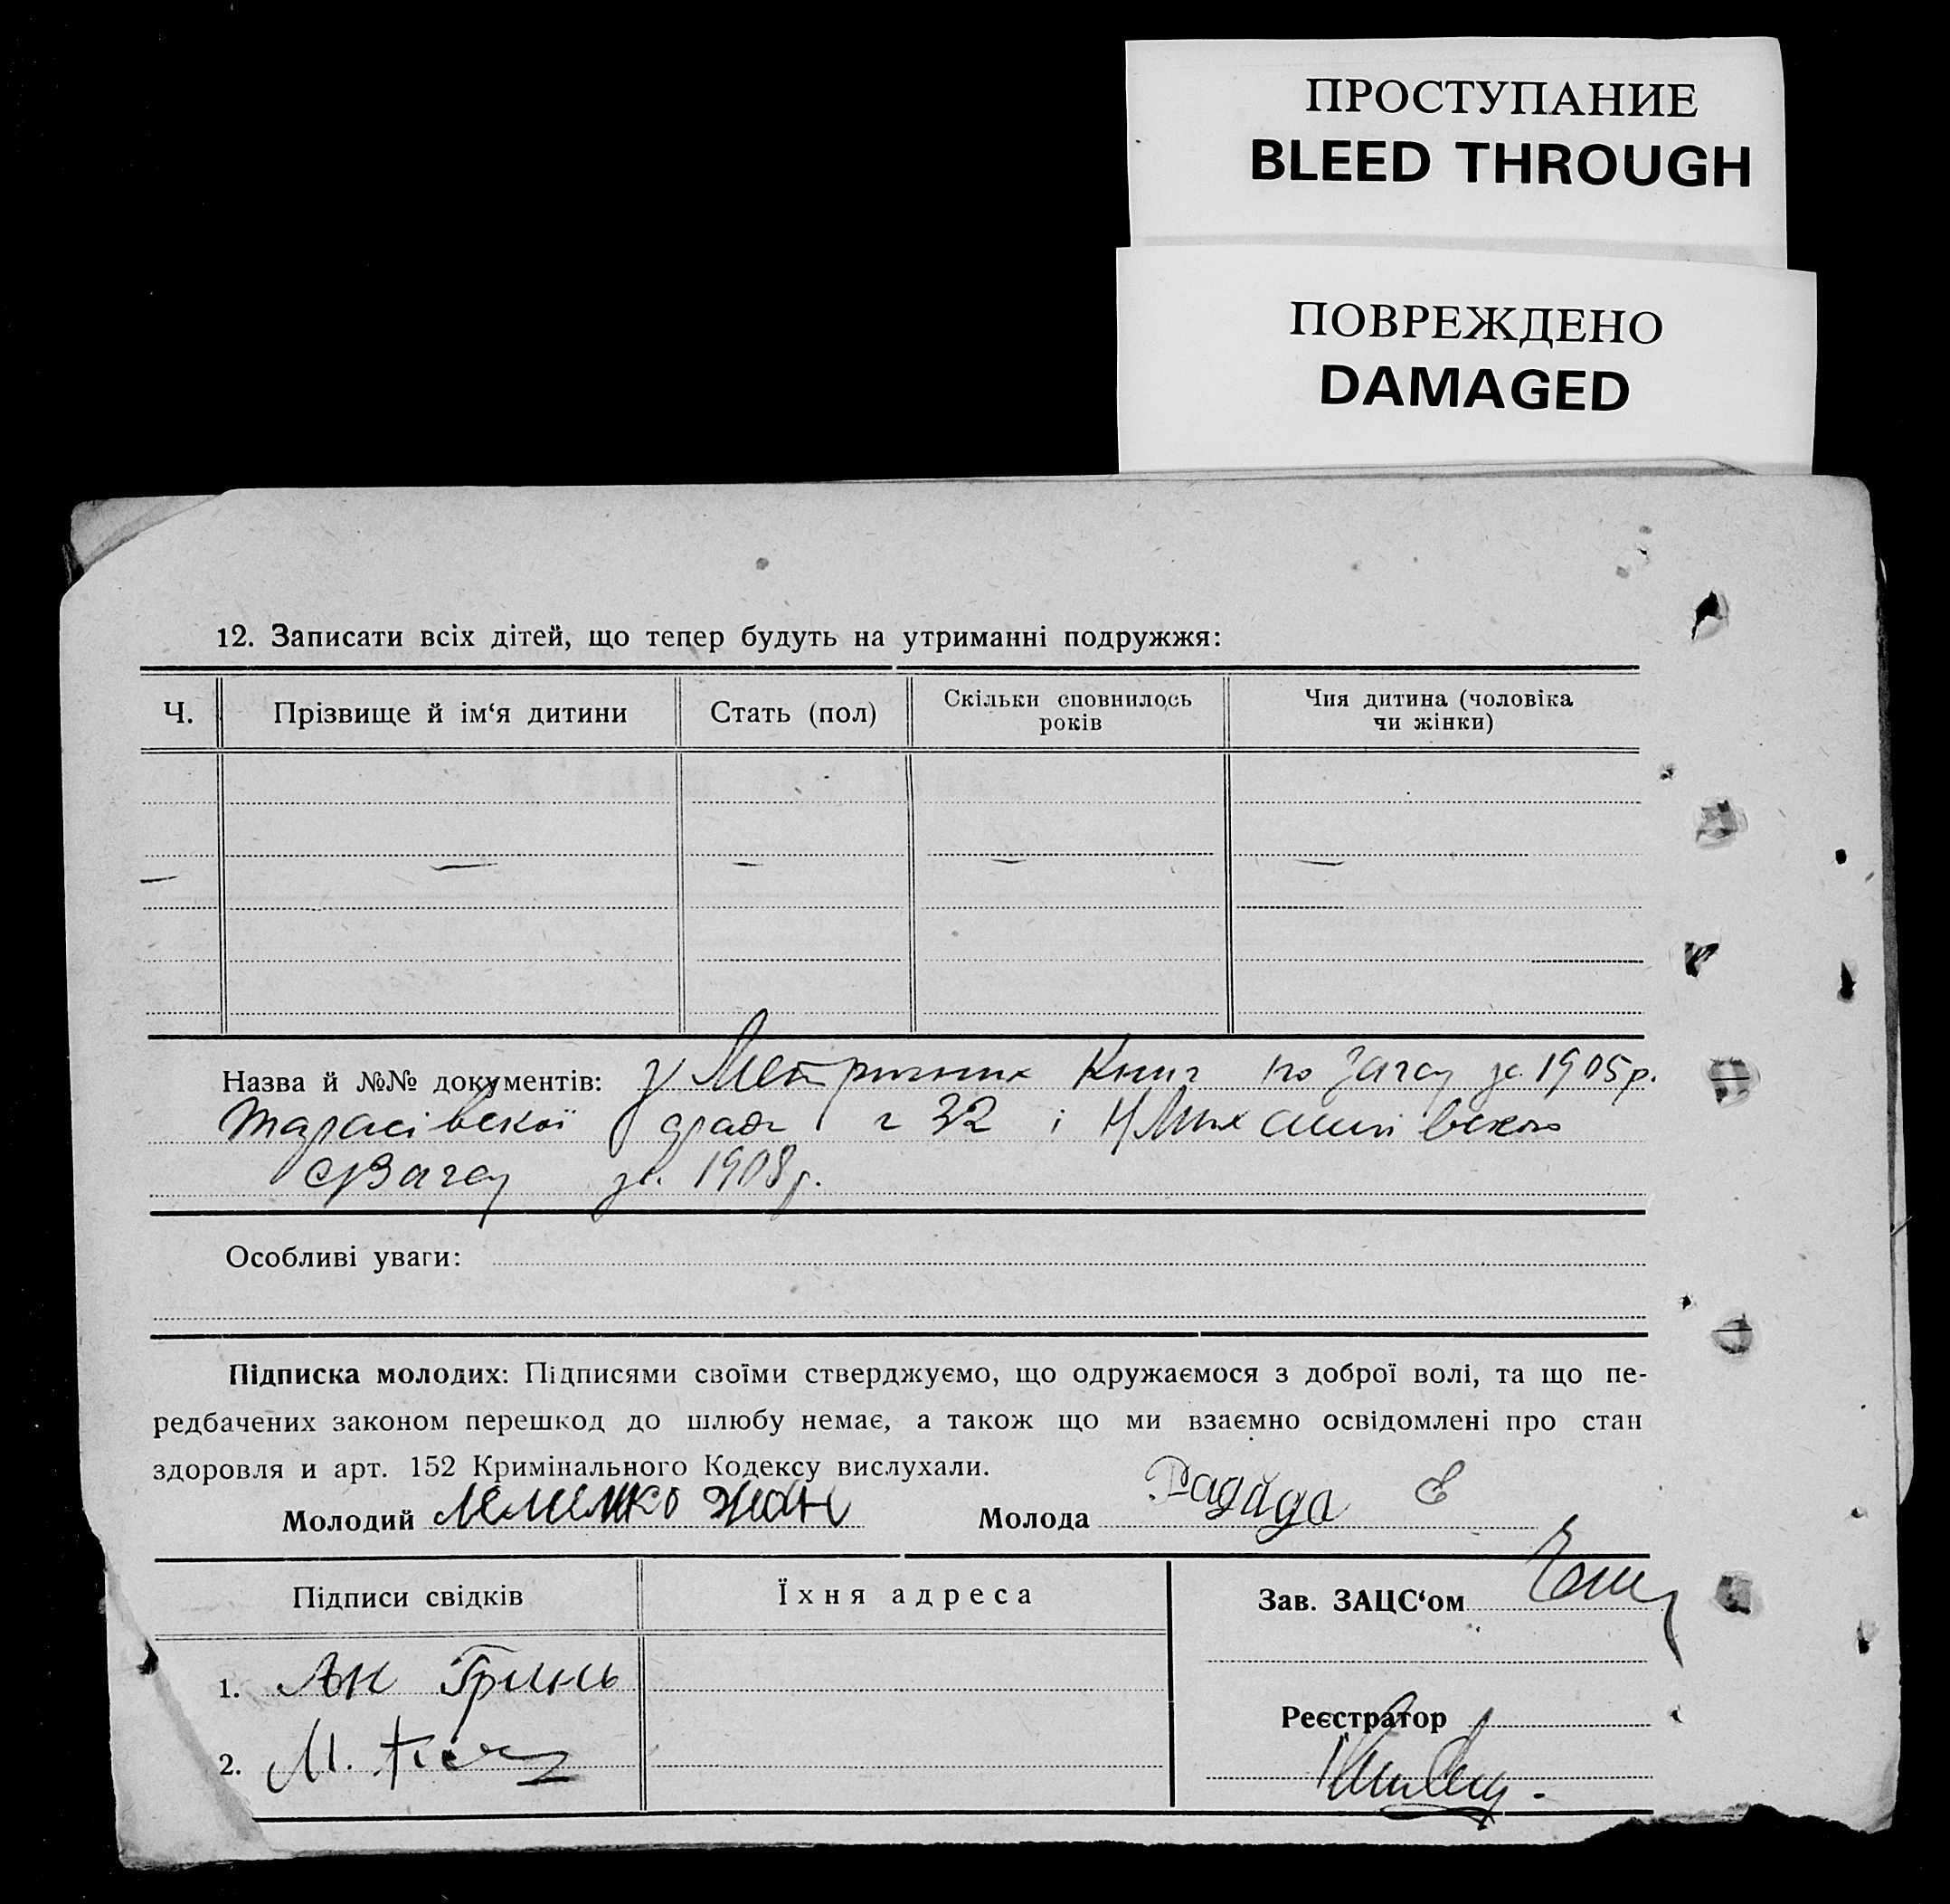 ПРОСТУПАНИЕ
BLEED THROUGH
ПОВРЕЖДЕНО
DAMAGED
12. Записати всіх дітей, що тепер будуть на утриманні подружжя:
Ч. Прізвище й ім‘я дитини Стать (пол) Скільки сповнилось років Чия дитина (чоловіка чи жінки)
Назва й №№ документів: Книг по за 1905р.
Тарасівскої 32 і
за 1908р.
Особливі уваги:
Підписка молодих: Підписями своїми стверджуємо, що одружаємося з доброї волі, та що пе-
редбачених законом перешкод до шлюбу немає, а також що ми взаємно освідомлені про стан
здоровля и арт. 152 Кримінального Кодексу вислухали.
Молодий Молода
Підписи свідків Їхня адреса Зав. ЗАЦС‘ом
1. Ан Гринь
Реєстратор
2. М.